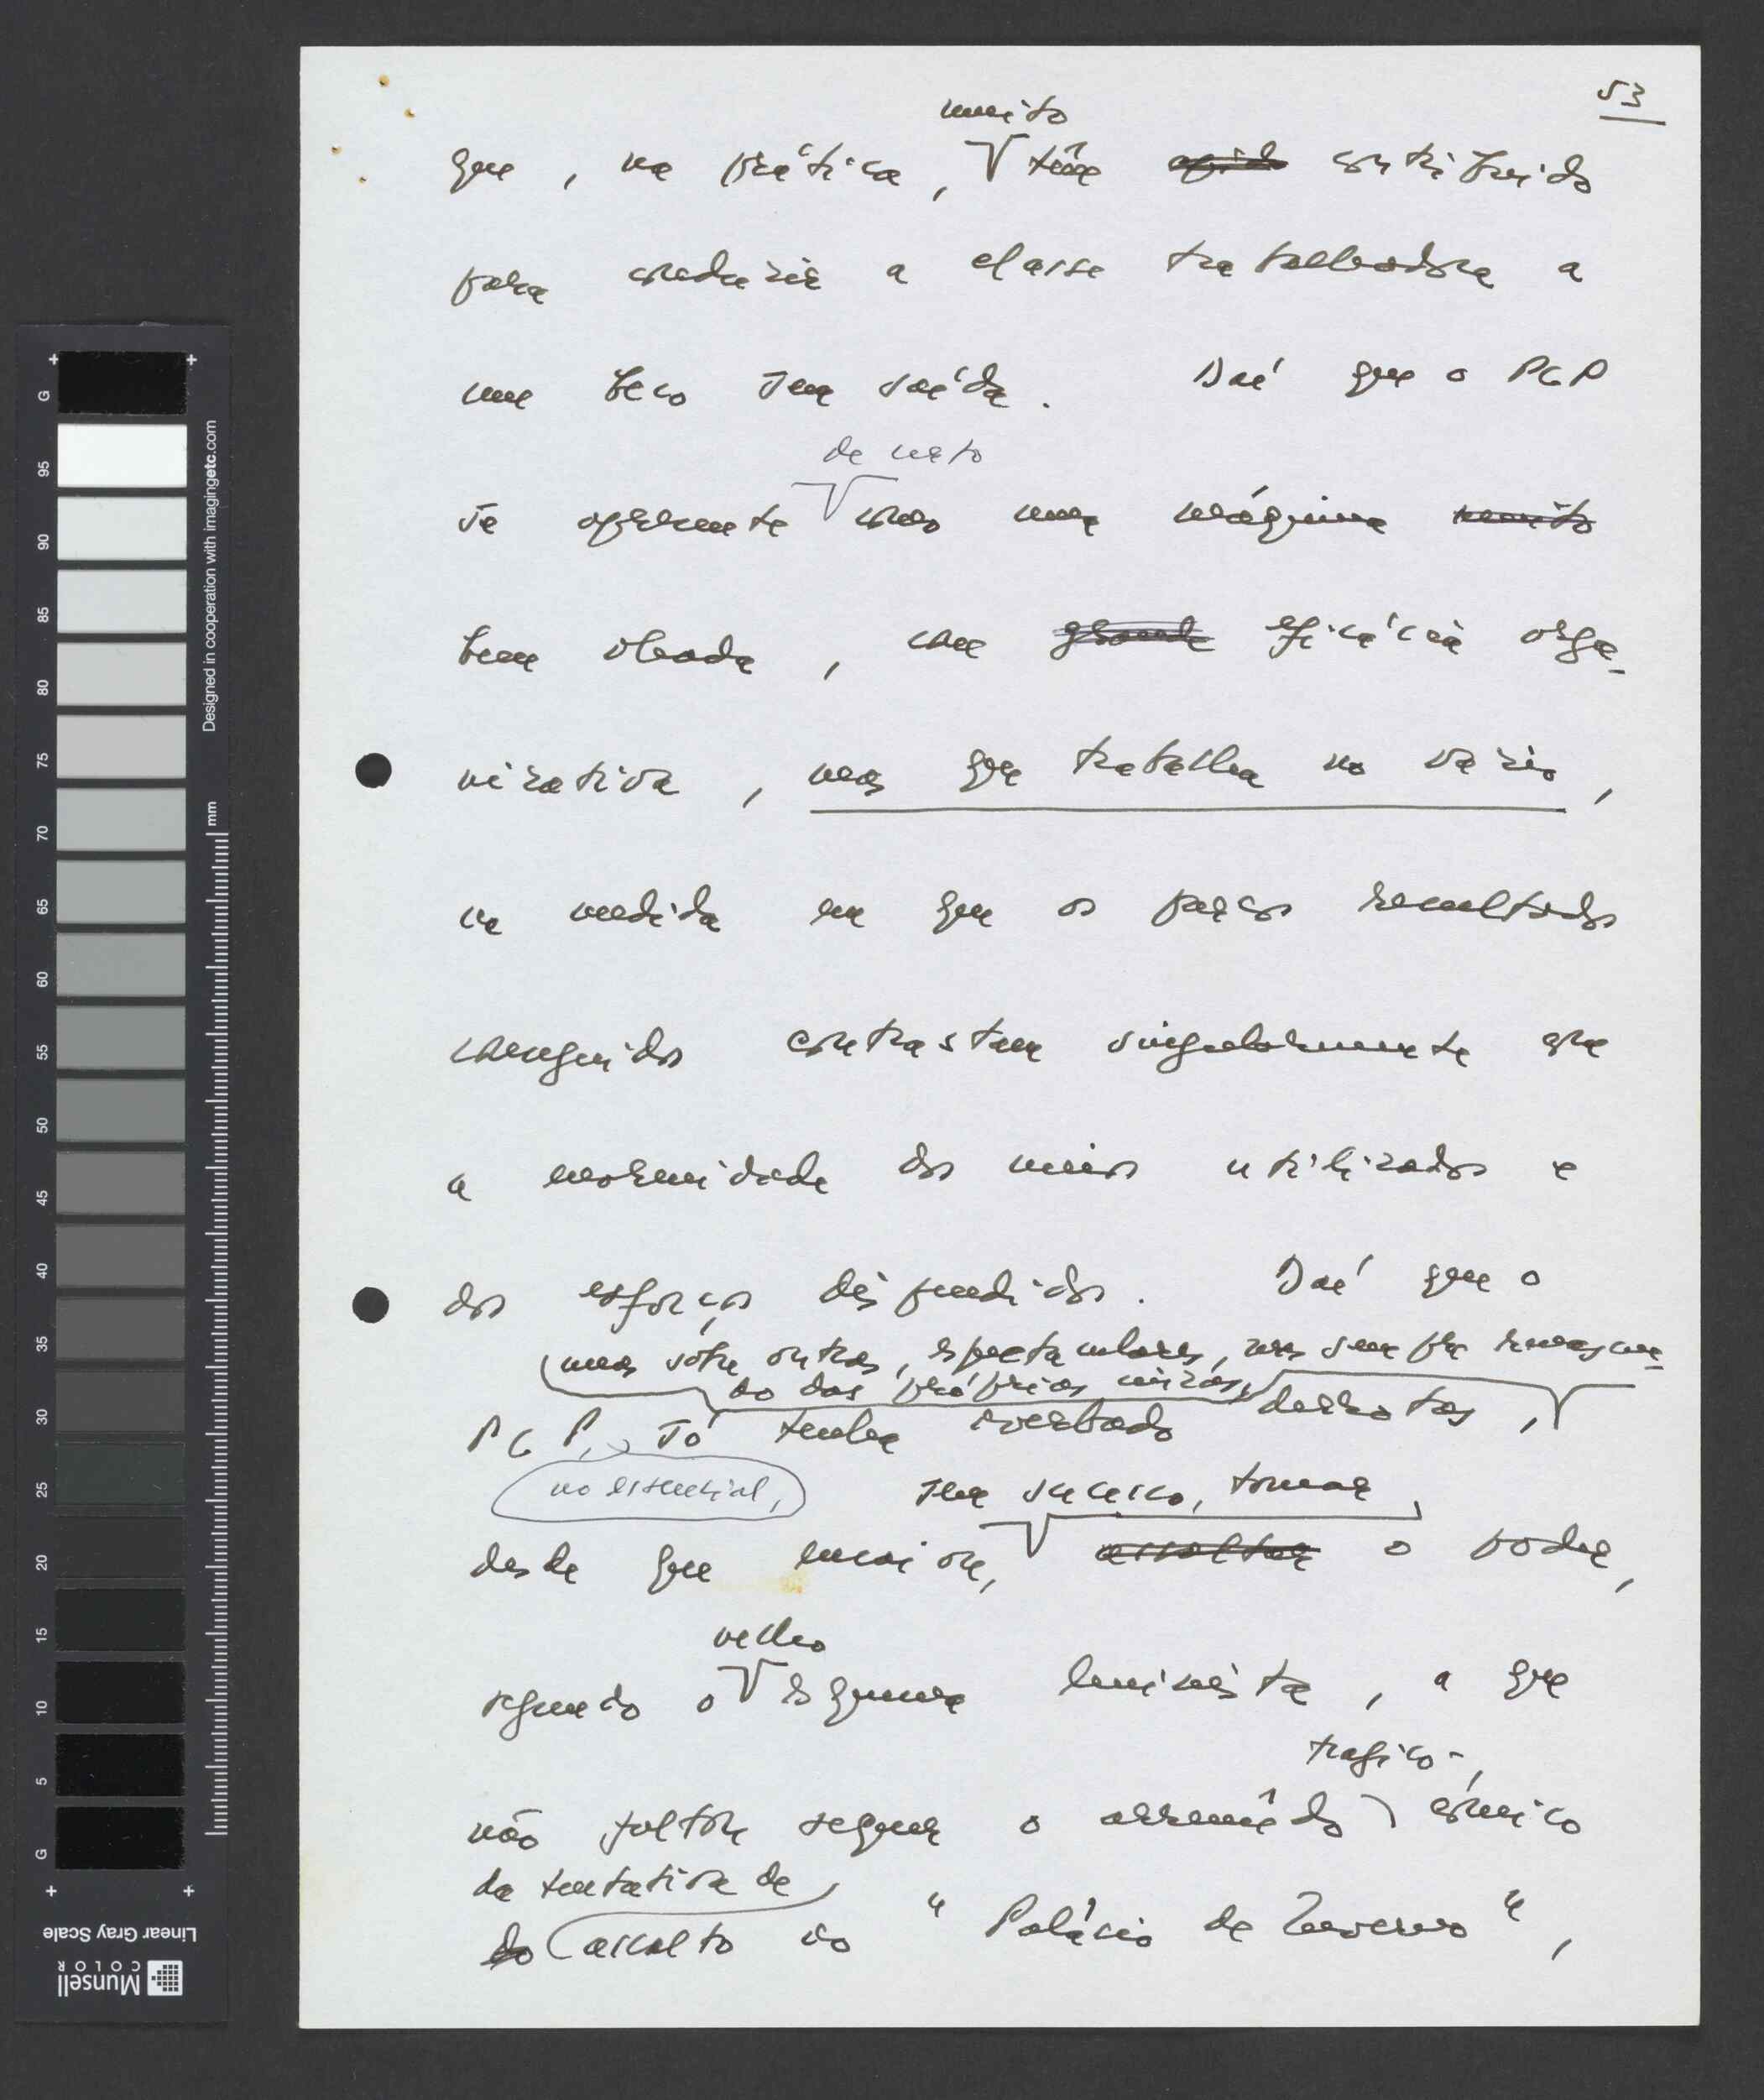 53
muito
que, na prática, têm apido contribuido
para conduzir a classe trabalhadora a
um beco sem saída. Daí que o PCP
de certo
se apresente como uma máquina muito
bem oleada, com grande eficácia orga-
nizativa, mas que trabalha no vazio,
na medida em que os parcos resultados
conseguidos contrastam singularmente com
a enormidade dos meios utilizados e
dos esforços dispendidos. Daí que o
umas sobre outras, espectaculares, mas sempre renascen-
do das próprias cinzas,
PCP, só tenha averbado derrotas,
no essencial,
sem sucesso, tomar
desde que ensaiou, assaltar o poder,
velho
segundo o esquema leninista, a que
não faltou sequer o arremêdo
tragico-
cómico
da tentativa de
do assalto ao "Palácio de Inverno",
G 95 90 85 80 75 70 65 60 55 50 45 40 35 30 25 20 15 10 5 G
mm
Designed in cooperation with imagingetc.com
Linear Gray Scale
Munsell
COLOR